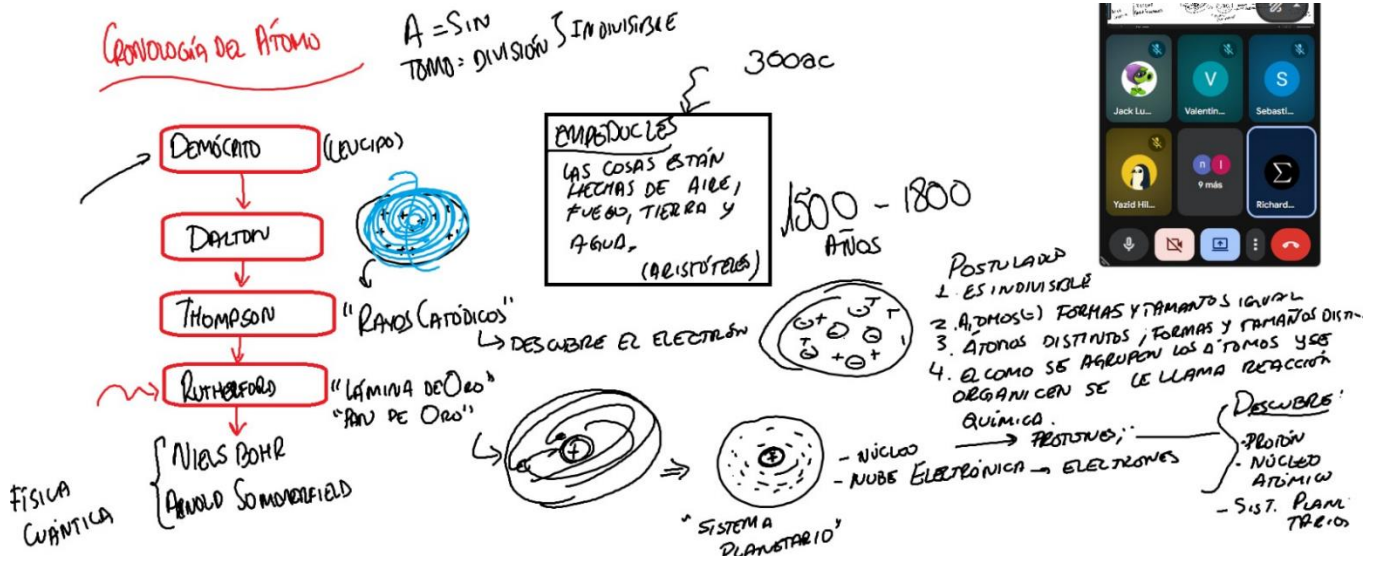 CRONOLOGÍA DEL ÁTOMO
A = SIN
TOMO = DIVISIÓN } INDIVISIBLE
300ac
DEMÓCRITO (LEUCIPO)
DALTON
THOMPSON
"RAYOS CATÓDICOS"
DESCUBRE EL ELECTRÓN
RUTHERFORD
"LÁMINA DE ORO"
"PAN DE ORO"
NIELS BOHR
ARNOLD SOMMERFIELD
FÍSICA
CUÁNTICA
EMPEDOCLES
LAS COSAS ESTÁN
HECHAS DE AIRE,
FUEGO, TIERRA Y
AGUA.
(ARISTÓTELES)
1500 - 1800
AÑOS
POSTULADO
1. ES INDIVISIBLE
2. ÁTOMOS(=) FORMAS Y TAMAÑOS IGUAL
3. ÁTOMOS DISTINTOS; FORMAS Y TAMAÑOS DIST
4. EL COMO SE AGRUPEN LOS ÁTOMOS Y SE
ORGANICEN SE LE LLAMA REACCIÓN
QUÍMICA.
"SISTEMA
PLANETARIO"
- NÚCLEO → PROTONES;
- NUBE ELECTRÓNICA → ELECTRONES
DESCUBRE:
- PROTÓN
- NÚCLEO
ATÓMICO
- SIST. PLANE
TARIOS
Jack Lu...
Valentin...
Sebasti...
Yazid Hil...
9 más
Richard...
V
S
n
I
Σ